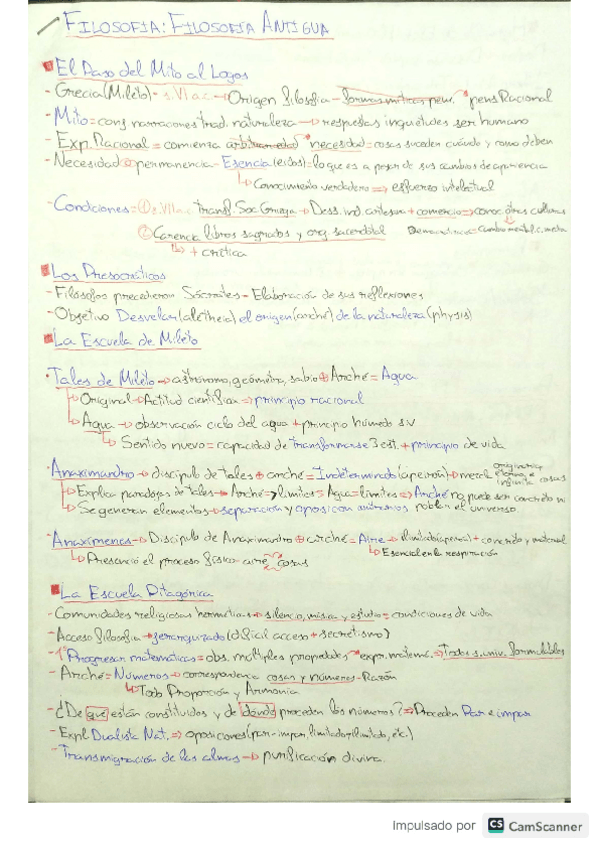 FILOSOFIA: FILOSOFIA ANTIGUA
El Paso del Mito al Logos
- Grecia (Mileto) - s. VI a.c → Origen filosofia - formas míticas pens. → pens Racional
- Mito = conj narraciones trad. naturaleza → respuestas inquietudes ser humano
- Exp. Racional = comienza arbitrariedad → necesidad = cosas suceden cuándo y como deben
- Necesidad ⊕ permanencia - Esencia (eidos) = lo que es a pesar de sus cambios de apariencia
↳ Conocimiento verdadero ⇒ esfuerzo intelectual
- Condiciones = ① s. VII a.c Transf. Soc Griega → Des. ind. artesan + comercio ⇒ conoc otras culturas
② Carencia libros sagrados y org. sacerdotal
Cambio mental
↳ + crítica
Los Presocráticos
- Filósofos precedieron Sócrates - Elaboración de sus reflexiones
- Objetivo Desvelar (aletheia) el origen (arché) de la naturaleza (physis)
La Escuela de Mileto
· Tales de Mileto → astrónomo, geómetra, sabio ⊕ Arché = Agua
↳ Original → Actitud científica ⇒ principio racional
↳ Agua → observación ciclo del agua + principio húmedo s.v
↳ Sentido nuevo = capacidad de transformarse 3 est. + principio de vida
· Anaximandro → discípulo de tales ⊕ arché = Indeterminado (apeirón) → originaria eterna e infinita cosas
↳ Explica paradojas de tales → Arché ≠> límites = Agua = límites ⇒ Arché no puede ser concreto ni
↳ Se generan elementos → separación y oposición poblan el universo.
· Anaxímenes → Discípulo de Anaximandro ⊕ arché = Aire → ilimitado (apeirón) + concreto y material
↳ Esencial en la respiración
↳ Presenció el proceso físico aire cosas
La Escuela Pitagórica
- Comunidades religiosas herméticas → silencio, música y estudio = condiciones de vida
- Acceso filosofía → jerarquizado (difícil acceso + secretismo)
- 1º Progresar matemáticas = obs. múltiples propiedades → expr. matemá. ⇒ Todo s. univ. formulables
- Arché = Números → correspondencia cosas y números - Razón
↳ Todo Proporción y Armonía
- ¿De qué están constituidos y de dónde proceden los números? ⇒ Proceden Par e impar
- Expl Dualista Nat. ⇒ oposiciones (par-impar, limitado-ilimitado, etc.)
- Transmigración de las almas → purificación divina.
Impulsado por CS CamScanner